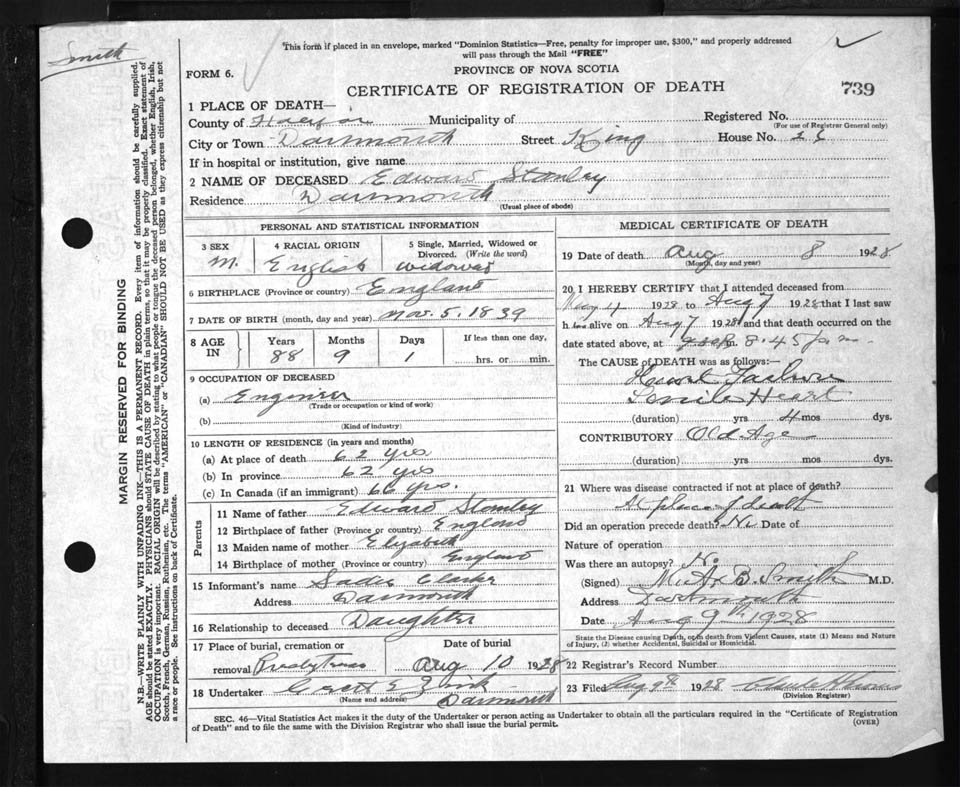 Smith
This form if placed in an envelope, marked "Dominion Statistics—Free, penalty for improper use, $300," and properly addressed
will pass through the Mail "FREE"
FORM 6.
PROVINCE OF NOVA SCOTIA
CERTIFICATE OF REGISTRATION OF DEATH
739
1 PLACE OF DEATH—
County of Halifax Municipality of Registered No.
(For use of Registrar General only)
City or Town Dartmouth Street King House No.
If in hospital or institution, give name
2 NAME OF DECEASED Edward Stanley
Residence Dartmouth
(Usual place of abode)
PERSONAL AND STATISTICAL INFORMATION
3 SEX
M.
4 RACIAL ORIGIN
English
5 Single, Married, Widowed or
Divorced. (Write the word)
widowed
6 BIRTHPLACE (Province or country) England
7 DATE OF BIRTH (month, day and year) Nov. 5. 1839
8 AGE IN
Years Months Days If less than one day,
88 9 1 hrs. or min.
9 OCCUPATION OF DECEASED
(a) Engineer
(Trade or occupation or kind of work)
(b)
(Kind of industry)
10 LENGTH OF RESIDENCE (in years and months)
(a) At place of death 62 yrs
(b) In province 62 yrs
(c) In Canada (if an immigrant) 66 yrs.
Parents
11 Name of father Edward Stanley
12 Birthplace of father (Province or country) England
13 Maiden name of mother Elizabeth
14 Birthplace of mother (Province or country) England
15 Informant's name Sadie Clarke
Address Dartmouth
16 Relationship to deceased Daughter
17 Place of burial, cremation or
removal
Date of burial
Aug 10 1928
18 Undertaker
(Name and address) Dartmouth
MEDICAL CERTIFICATE OF DEATH
19 Date of death Aug 8 1928
(Month, day and year)
20 I HEREBY CERTIFY that I attended deceased from
May 4 1928 to Aug 7 1928 that I last saw
h alive on Aug 7 1928 and that death occurred on the
date stated above, at 8.45 p.m.
The CAUSE of DEATH was as follows:—
Heart Failure
Senile Heart
(duration) yrs 4 mos dys.
CONTRIBUTORY Old Age
(duration) yrs mos dys.
21 Where was disease contracted if not at place of death?
At place of death
Did an operation precede death? No Date of
Nature of operation
Was there an autopsy? No.
(Signed) B. Smith M.D.
Address Dartmouth
Date Aug 9th 1928
State the Disease causing Death, or in death from Violent Causes, state (1) Means and Nature
of Injury, (2) whether Accidental, Suicidal or Homicidal.
22 Registrar's Record Number
23 Filed Aug 9th 1928
(Division Registrar)
SEC. 46—Vital Statistics Act makes it the duty of the Undertaker or person acting as Undertaker to obtain all the particulars required in the "Certificate of Registration
of Death" and to file the same with the Division Registrar who shall issue the burial permit.
(OVER)
MARGIN RESERVED FOR BINDING
N.B.—WRITE PLAINLY WITH UNFADING INK—THIS IS A PERMANENT RECORD. Every item of information should be carefully supplied.
AGE should be stated EXACTLY. PHYSICIANS should STATE CAUSE OF DEATH in plain terms, so that it may be properly classified. Exact statement of
OCCUPATION is very important. RACIAL ORIGIN will be described by stating to what people or tongue the deceased person belonged, whether English, Irish,
Scotch, French, German, Russian, Ruthenian, etc. The terms "AMERICAN" or "CANADIAN" SHOULD NOT BE USED as they express citizenship but not
a race or people. See instructions on back of Certificate.